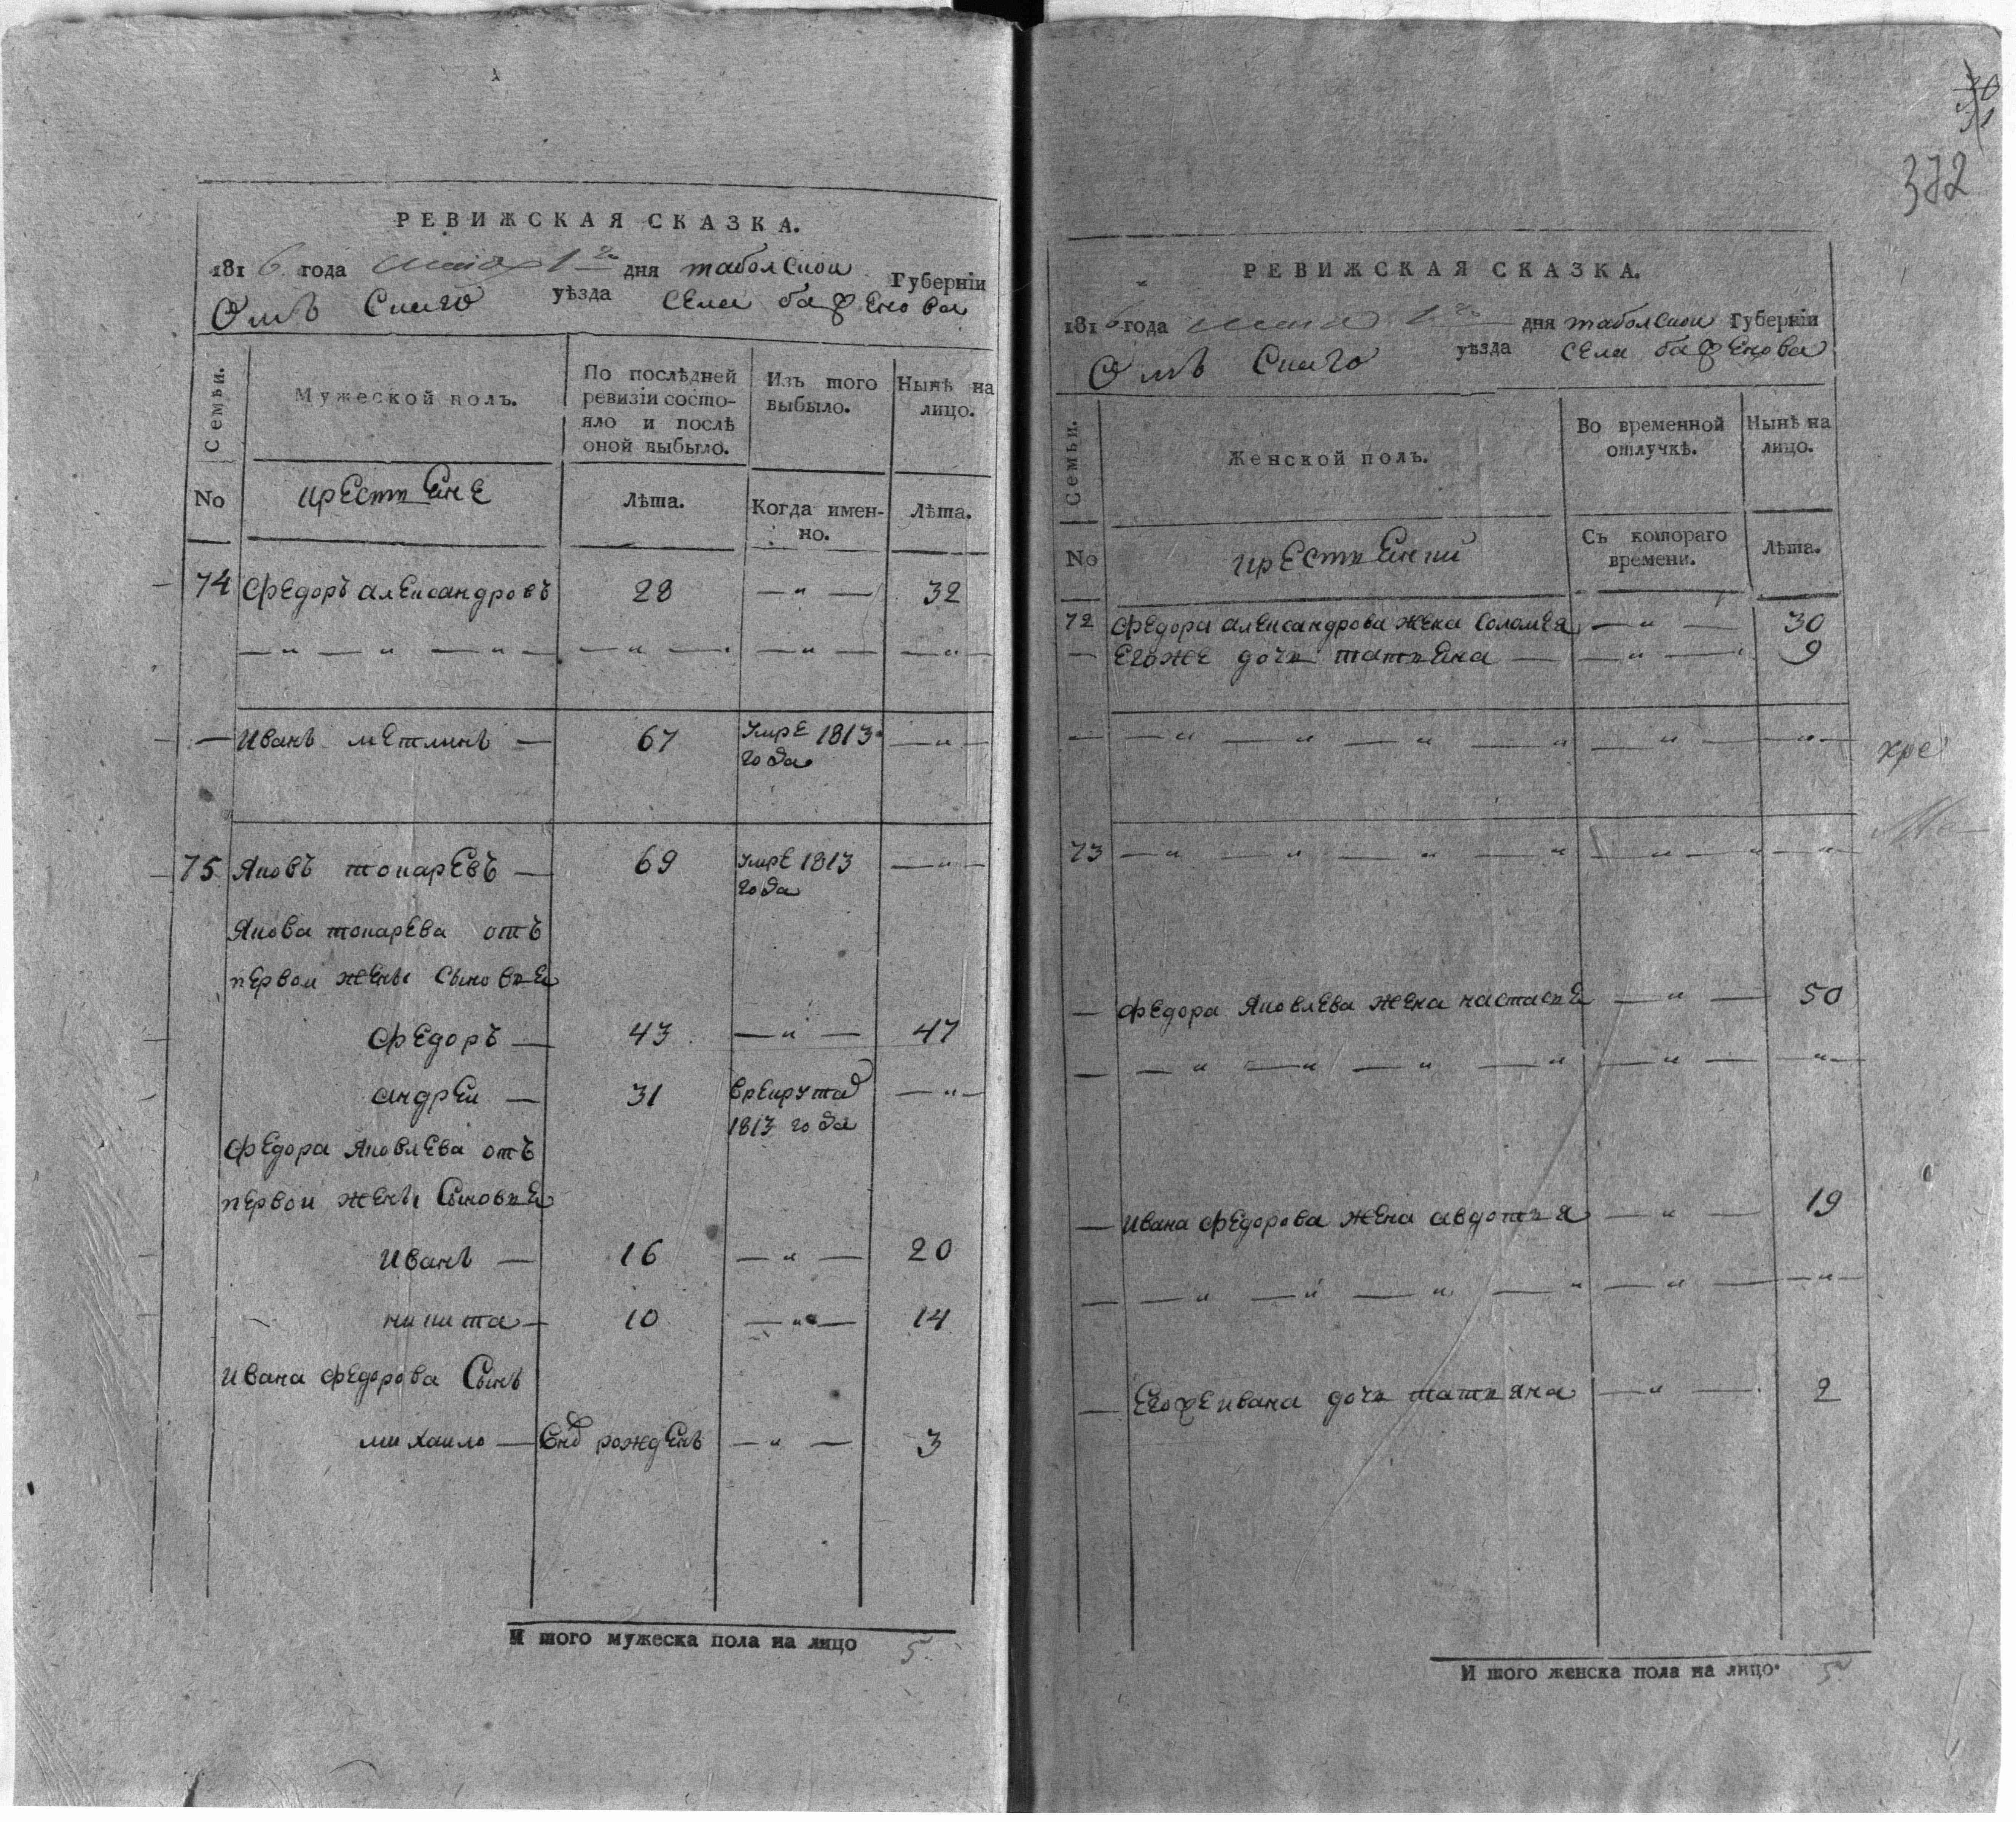 РЕВИЖСКАЯ СКАЗКА.
1816 года маія 1 го дня таболскои Губерніи
Омъ Скаго уѣзда села бафЕнова
Семьи.
Мужеской полъ.
По послѣдней ревизіи состояло и послѣ оной выбыло.
Изъ того выбыло.
Нынѣ на лицо.
No
крЕстьЯнЕ
Лѣта.
Когда именно.
Лѣта.
74 ФЕдоръ алЕксандровъ 28 — „ — 32
— „ — „ — „ — — „ — — „ — — „ —
— Иванъ мЕтлинъ — 67 умрЕ 1813 — „ —
года
75 Яковъ токарЕвъ — 69 умрЕ 1813 — „ —
года
Якова токарЕва отъ
пЕрвои жЕны сыновьЯ
фЕдоръ — 43 — „ — 47
андрЕи — 31 врЕкруты — „ —
1813 года
фЕдора ЯковлЕва отъ
пЕрвои жЕны СыновьЯ
Иванъ — 16 — „ — 20
никита — 10 — „ — 14
Ивана фЕдорова Сынъ
михаило — рождЕнъ — „ — 3
И того мужеска пола на лицо 5.
372
РЕВИЖСКАЯ СКАЗКА.
1816 года маія 1 го дня таболскои Губерніи
Омъ Скаго уѣзда села бафЕнова
Семьи.
Женской полъ.
Во временной отлучкѣ.
Нынѣ на лицо.
No
крЕстьЯнки
Съ котораго времени.
Лѣта.
72 фЕдора алЕксандрова жЕна СоломЕя — „ — 30
— ЕгожЕ дочь татьЯна — — „ — 9
— — „ — „ — „ — „ — „ — — „ —
хре
73 — „ — „ — „ — „ — „ — „ — „
— фЕдора ЯковлЕва жЕна настасьЯ — „ — 50
— — „ — „ — „ — „ — „ — — „ —
— Ивана фЕдорова жЕна авдотьЯ — „ — 19
— — „ — „ — „ — „ — „ — — „ —
— ЕгожЕ ивана дочь татьЯна — „ — 2
И того женска пола на лицо. 5